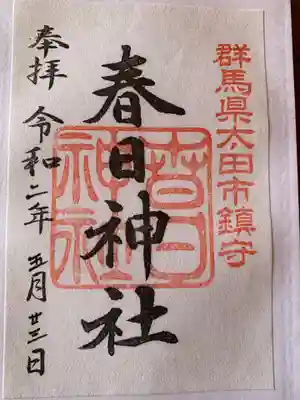 群馬県太田市鎮守
春日神社
春日
神社
奉拝 令和二年 五月廿三日